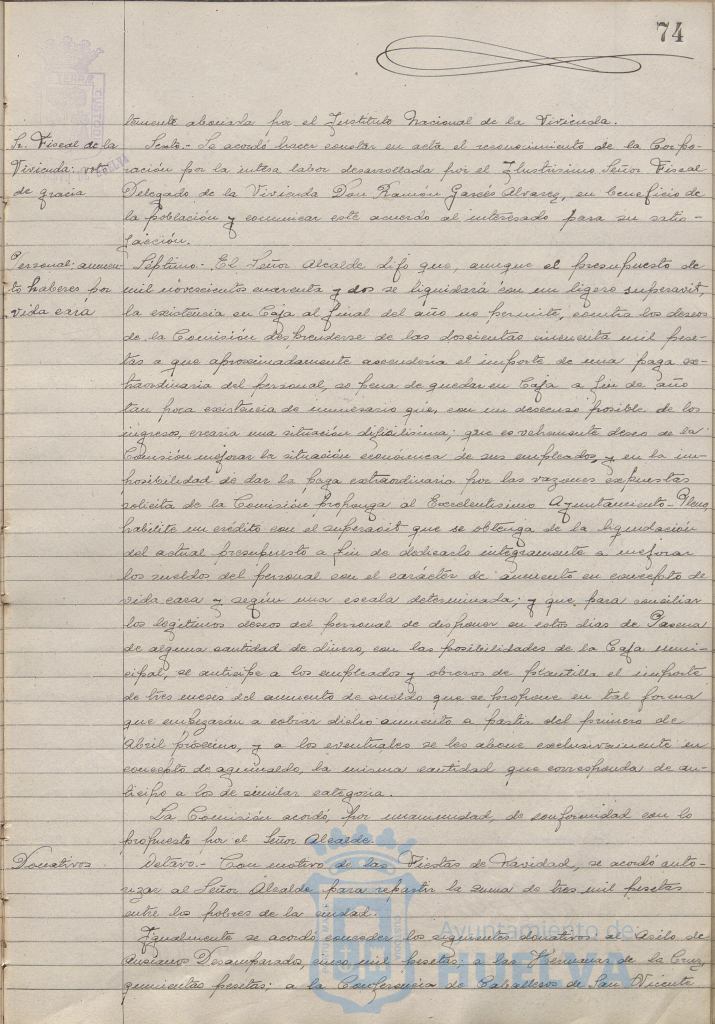 74
tamente abonada por el Instituto Nacional de la Vivienda.
Sr. Fiscal de la
Vivienda: voto
de gracia
Sexto.- Se acordó hacer constar en acta el reconocimiento de la Corpo-
ración por la intesa labor desarrollada por el Ilustrísimo Señor Fiscal
Delegado de la Vivienda Don Ramón Garcés Alvarez, en beneficio de
la población y comunicar este acuerdo al interesado para su satis-
facción.
Personal: aumen-
to haberes por
vida cara
Séptimo.- El Señor Alcalde dijo que, aunque el presupuesto de
mil novescientos cuarenta y dos se liquidará con un ligero superavit,
la existencia en Caja al final del año no permite, contra los deseos
de la Comisión desprenderse de las doscientas cincuenta mil pese-
tas a que aproximadamente ascendería el importe de una paga ex-
traordinaria del personal, so pena de quedar en Caja a fin de año
tan poca existencia de numerario que, con un descenso posible de los
ingresos, crearía una situación dificilísima; que es vehemente deseo de la
Comisión mejorar la situación económica de sus empleados, y en la im-
posibilidad de dar la paga extraordinaria por las razones expuestas
solicita de la Comisión proponga al Excelentísimo Ayuntamiento-Pleno,
habilite un crédito con el superavit que se obtenga de la liquidación
del actual presupuesto a fin de dedicarlo integramente a mejorar
los sueldos del personal con el carácter de aumento en concepto de
vida cara y según una escala determinada; y que, para conciliar
los legítimos deseos del personal de disponer en estos días de Pascua
de alguna cantidad de dinero, con las posibilidades de la Caja muni-
cipal, se anticipe a los empleados y obreros de plantilla el importe
de tres meses del aumento de sueldo que se propone en tal forma
que empezarán a cobrar dicho aumento a partir del primero de
Abril próximo, y a los eventuales se les abone exclusivamente en
concepto de aguinaldo, la misma cantidad que corresponda de an-
ticipo a los de similar categoría.
La Comisión acordó, por unanimidad, de conformidad con lo
propuesto por el Señor Alcalde.
Donativos
Octavo.- Con motivo de las Fiestas de Navidad, se acordó auto-
rizar al Señor Alcalde para repartir la suma de tres mil pesetas
entre los pobres de la ciudad.
Igualmente se acordó conceder los siguientes donativos: al Asilo de
Ancianos Desamparados, cinco mil pesetas; a las Hermanas de la Cruz,
quinientas pesetas; a la Conferencia de Caballeros de San Vicente
Ayuntamiento de
HUELVA